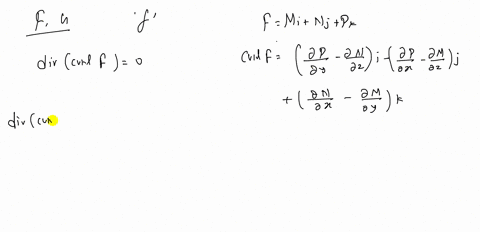 F, G 'f'
div (curl F) = 0
F = Mi + Nj + Pk
Curl F = (∂P/∂y - ∂N/∂z) i - (∂P/∂x - ∂M/∂z) j
+ (∂N/∂x - ∂M/∂y) k
div (cur